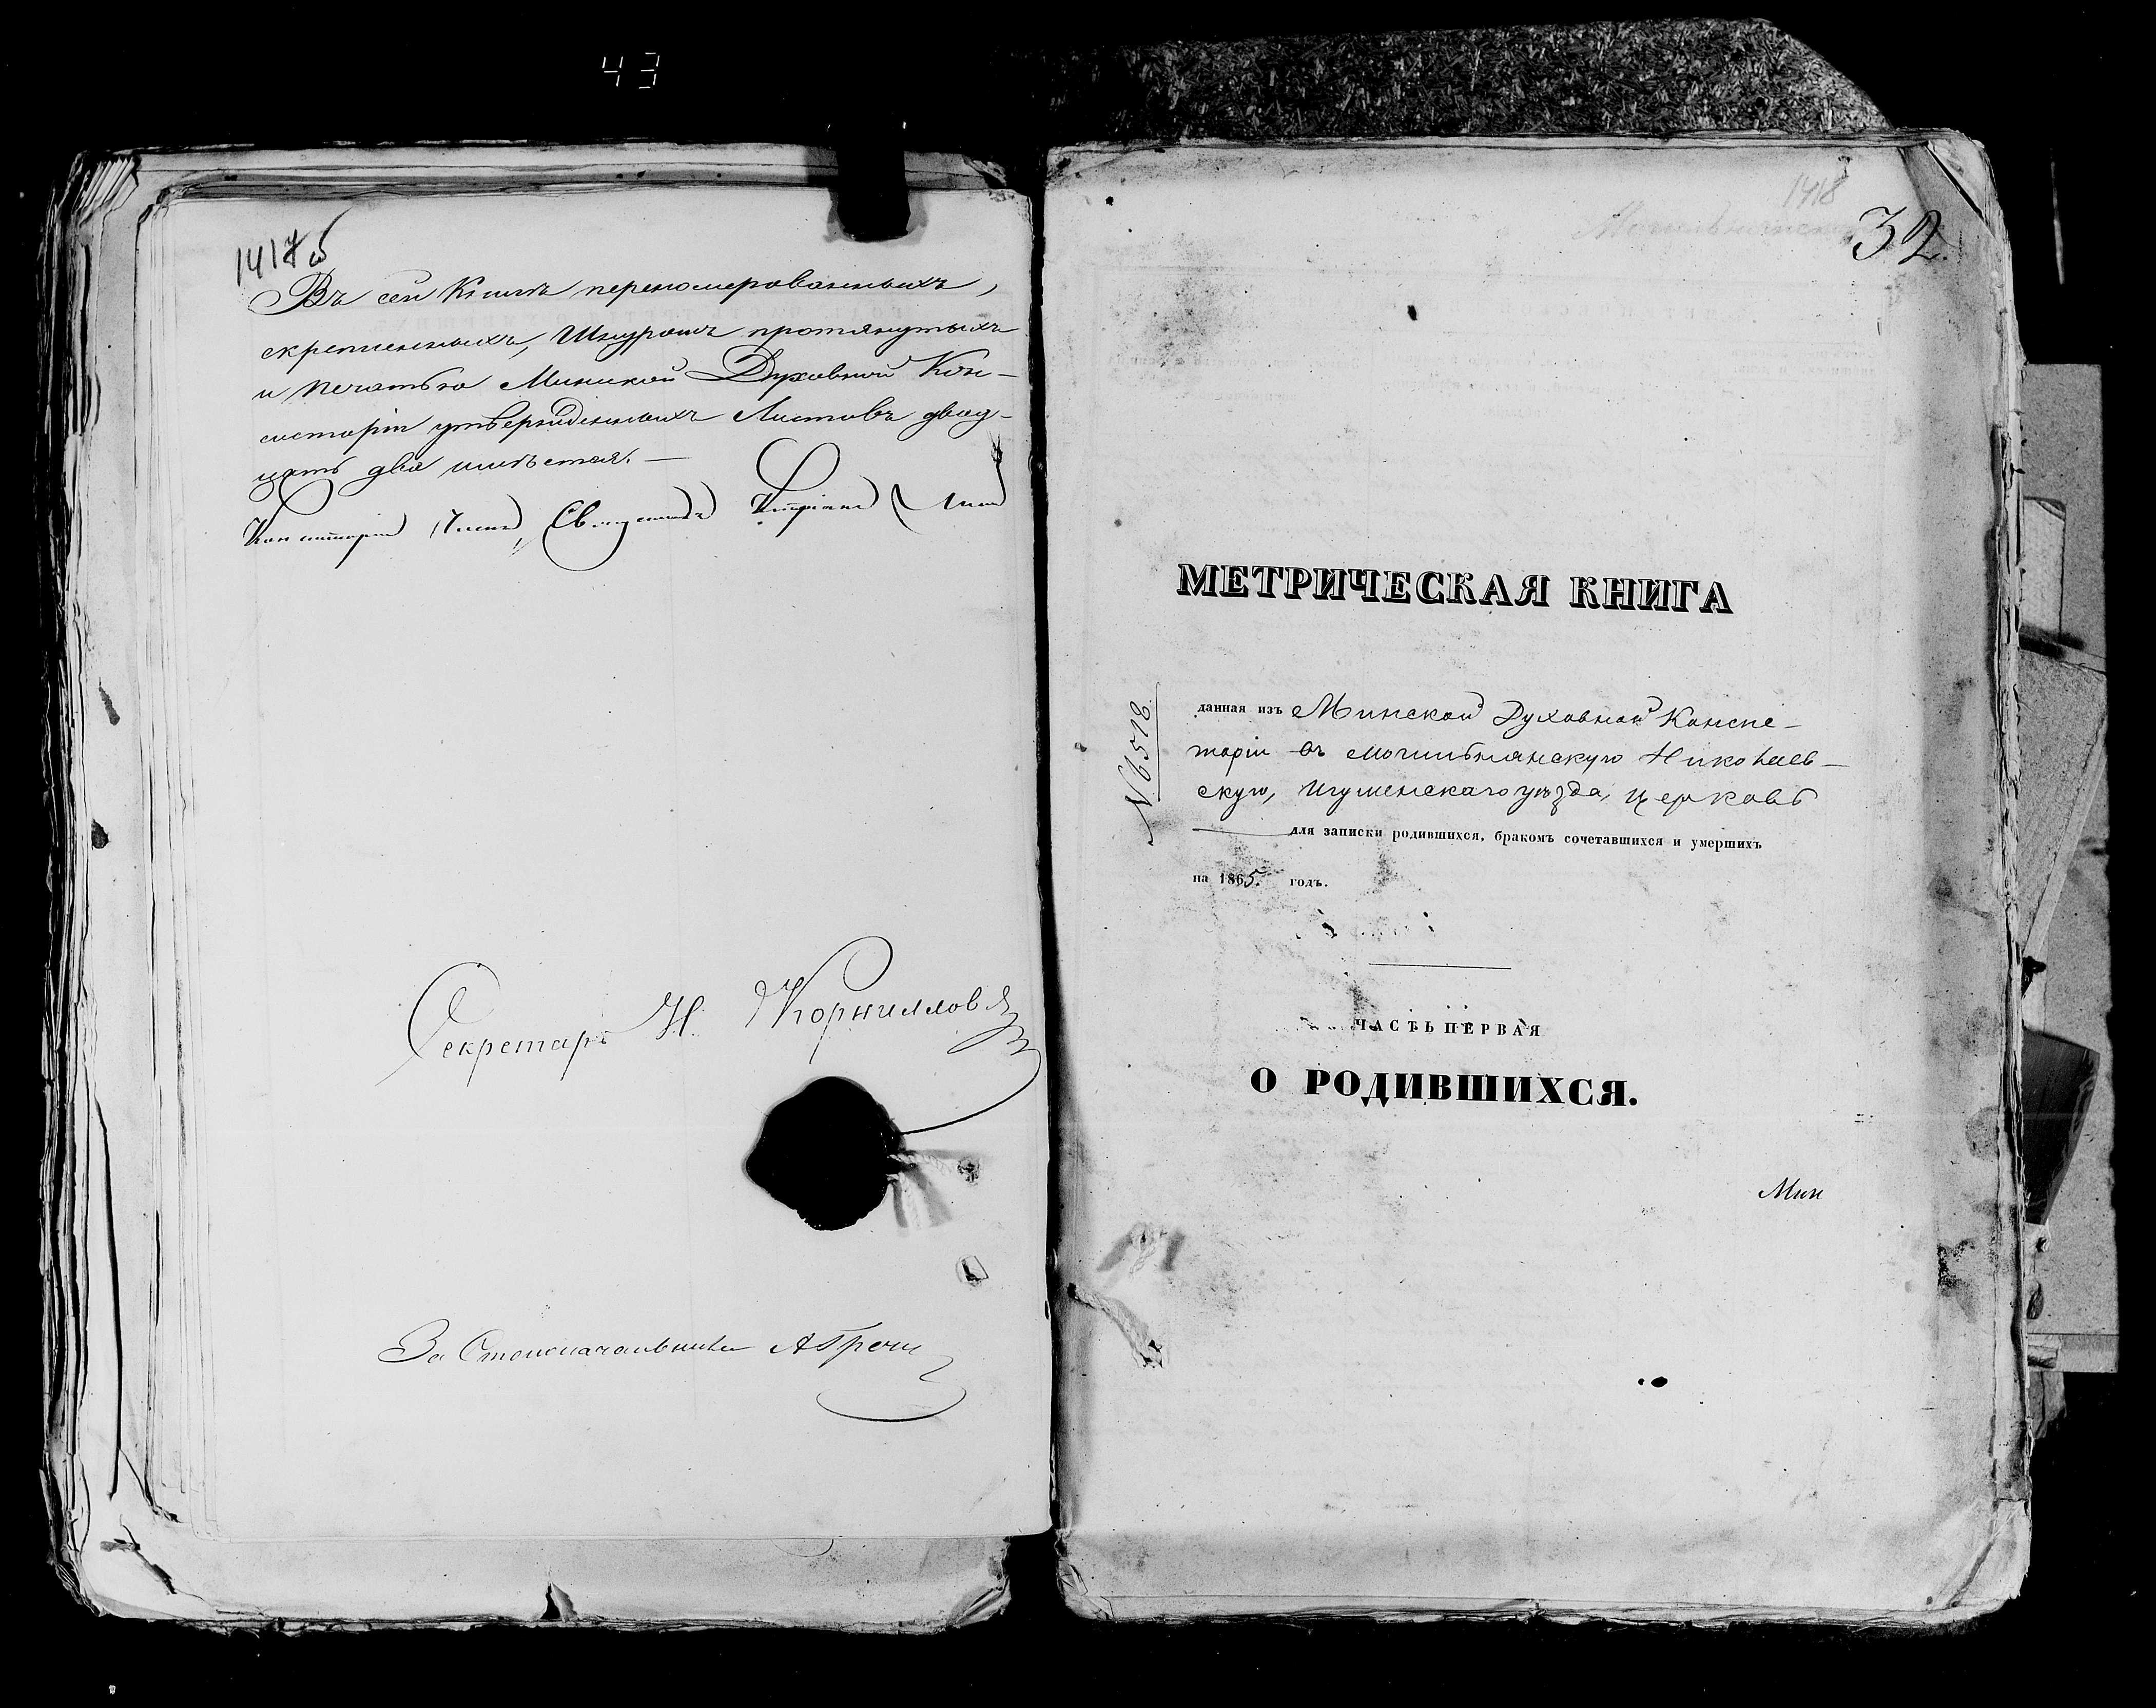 43
1417 б
Въ сей Книгѣ переномерованныхъ,
скрепленныхъ, Шнуромъ протянутыхъ
и печатью Минской Духовной Кон-
систоріи утвержденныхъ Листовъ двад-
цать два имѣется. —
Консисторіи Членъ, Священникъ
Секретарь Н. Корниллов
За Столоначальника
1418
32
МЕТРИЧЕСКАЯ КНИГА
№ 6518
данная изъ Минской Духовной Консис-
торіи въ Могильнянскую Николаев-
скую, Игуменскаго уѣзда, церковь
для записки родившихся, бракомъ сочетавшихся и умершихъ
на 1865. годъ.
ЧАСТЬ ПЕРВАЯ
О РОДИВШИХСЯ.
Мин